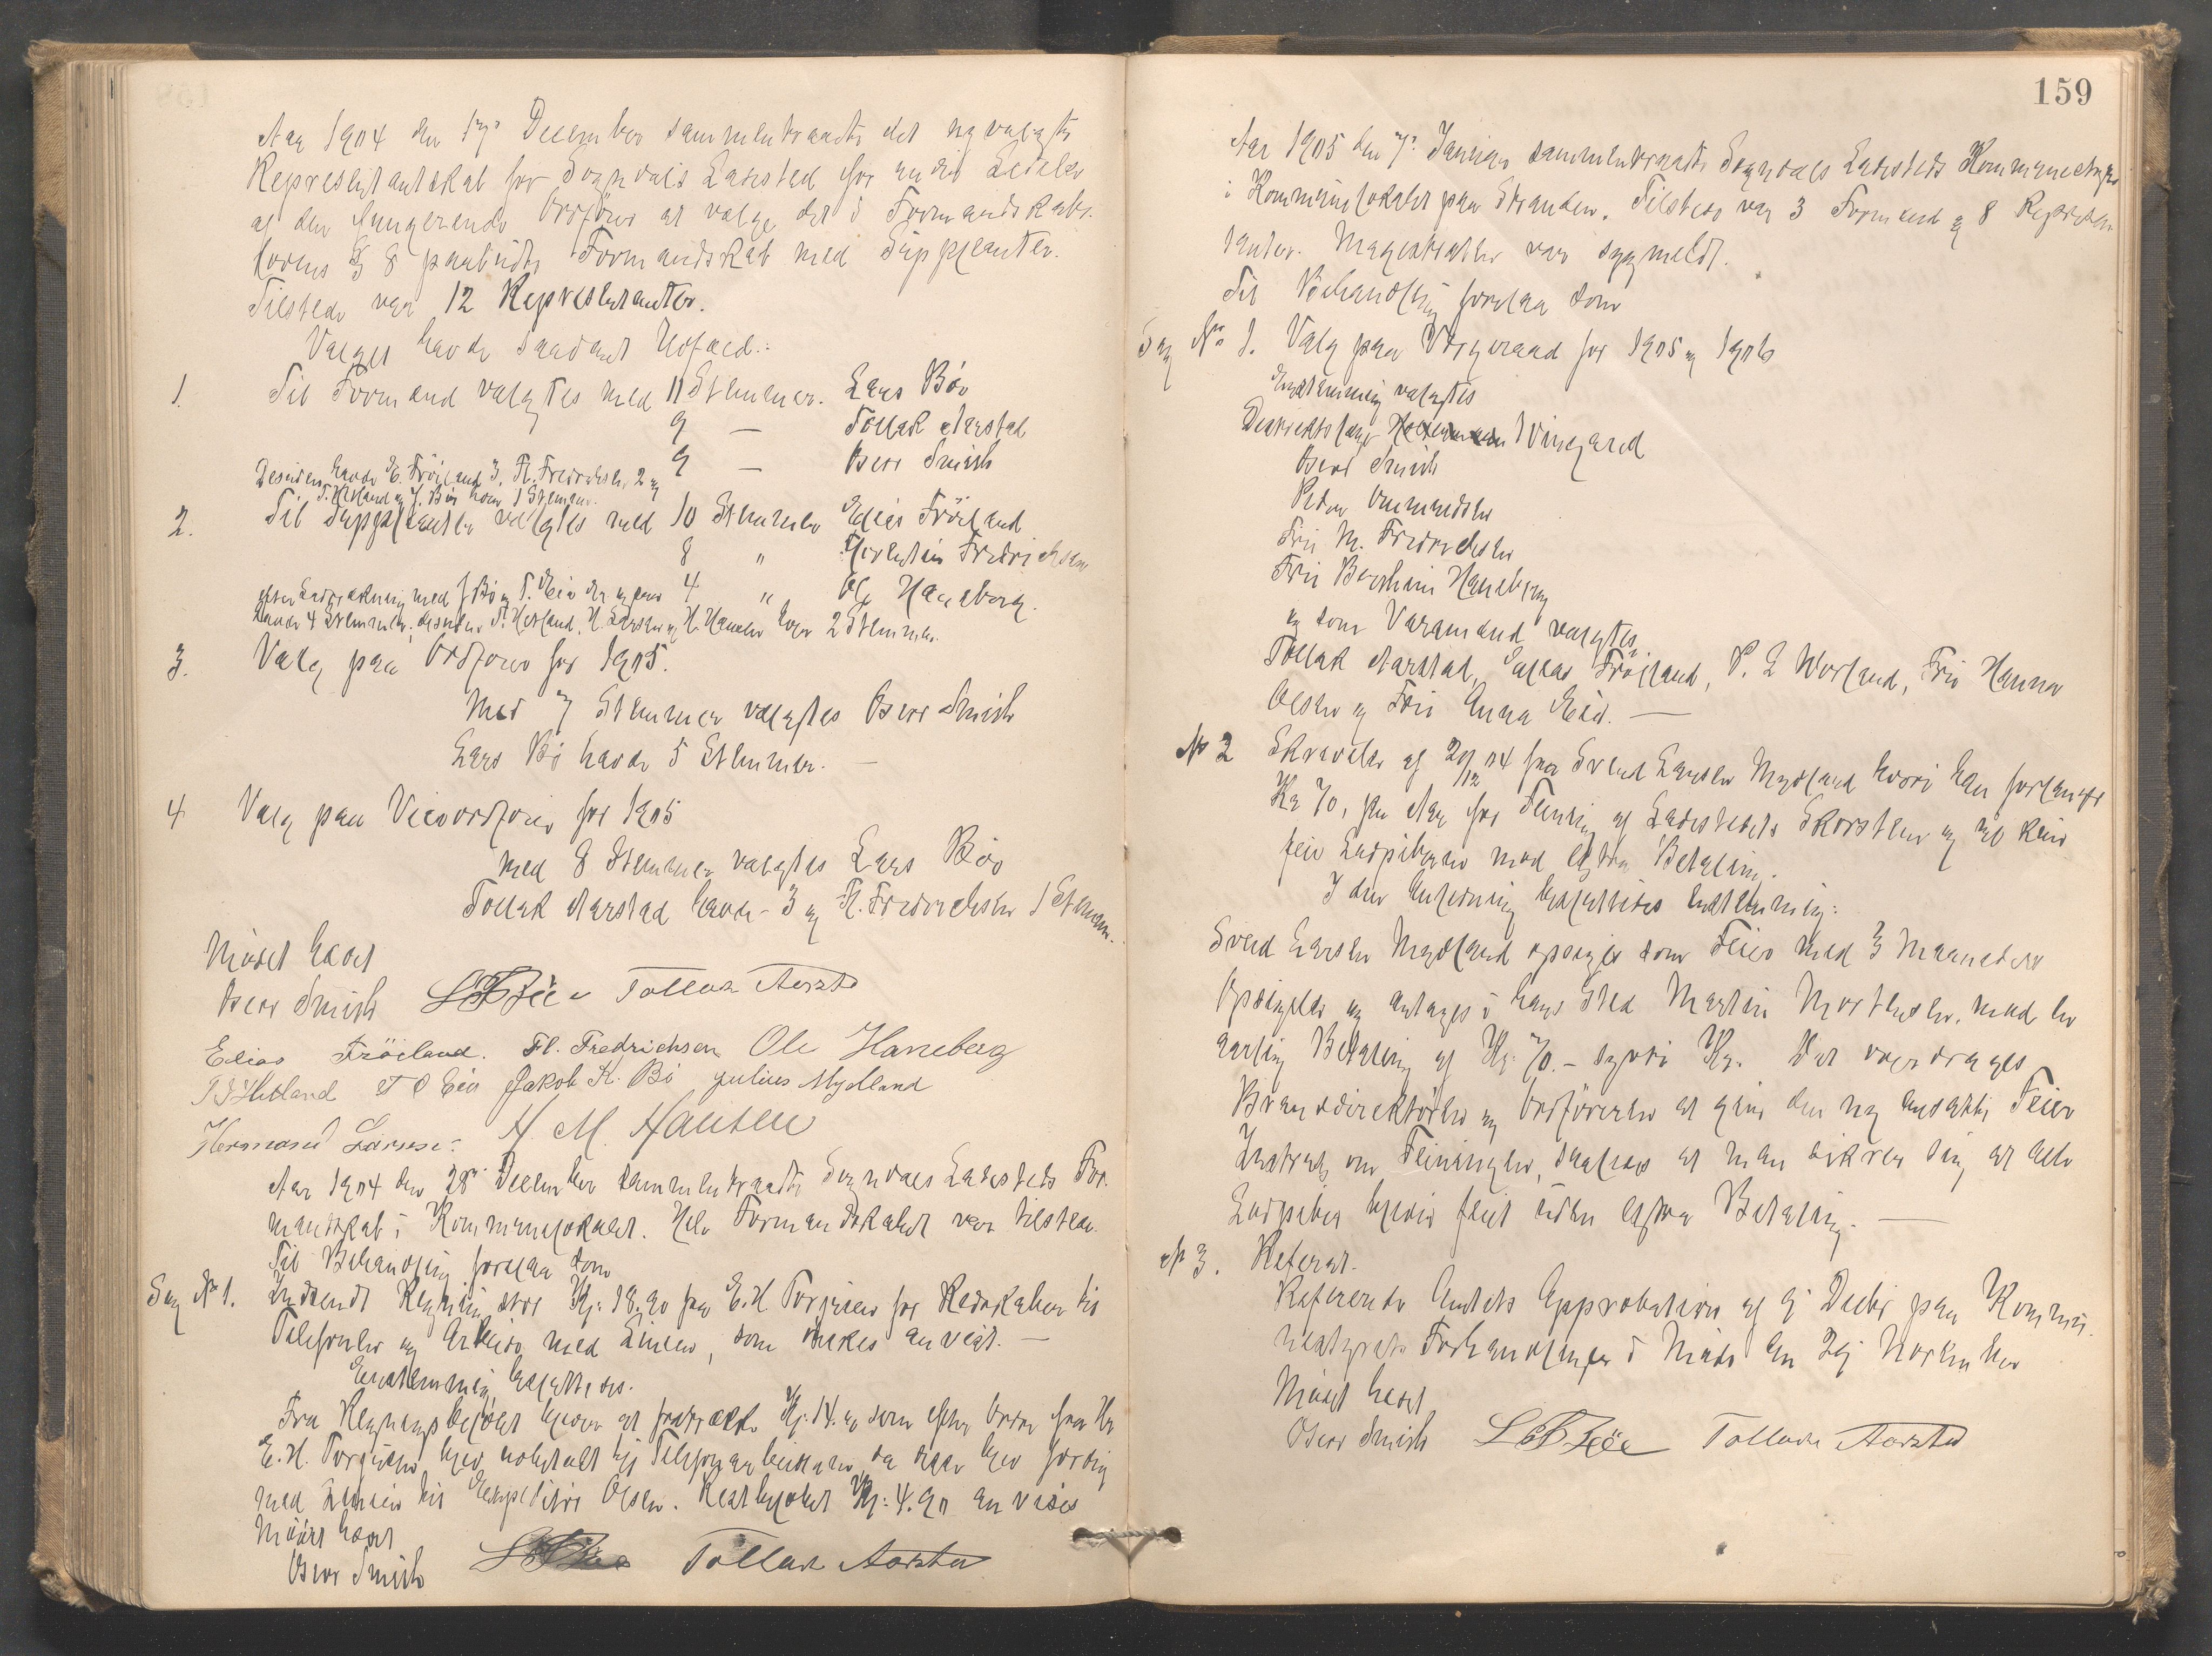 Aar 1904 den 17de December sammentraadte det nyvalgte
Representantskab for Sogndals Ladested for under Ledelse
af den fungerende Ordförer at vælge det i Formandskabs-
lovens § 8 paabudte Formandskab med Supplanter.
Tilstede var 12 Representanter.
Valget havde saadant Udfald:
1. Til Formænd valgtes med 11 Stemmer. Lars Böe
9 — Tollak Aarstad
9 — Osvr Smith
Desuden havde E. Fröiland 3, Fl. Fredrichsen 2 og
T. Hetland og J. Bö hver 1 Stemme.
2. Til Supplanter valgtes med 10 Stemmer Elias Fröiland
8 " Florentin Fredrichsen
efter Lodtrækning med J Bö og T. Eia der ogsaa 4 " Ole Haneberg.
havde 4 Stemmer, desuden T. Hetland, H. Larsen og H. Hansen hver 2 Stemmer.
3. Valg paa Ordförer for 1905.
Med 7 Stemmer valgtes Osvr Smith
Lars Bö havde 5 Stemmer. —
4 Valg paa Viceordförer for 1905
med 8 Stemmer valgtes Lars Böe
Tollak Aarstad havde 3 og Fl. Fredrichsen 1 Stemme.
Mödet hævet
Osvr Smith L Böe Tollak Aarstad
Elias Fröiland. Fl. Fredrichsen Ole Haneberg
T Hetland T O Eia Jakob K. Bö Julius Mydland
Hermand Larsen. H. M. Hansen
Aar 1904 den 28de December sammentraadte Sogndals Ladesteds For-
mandskab i Kommunelokalet. Hele Formandskabet var tilstede.
Til Behandling forelaa som
Sag No 1. Indsendt Regning stor Kr. 18.90 fra E. H. Torjusen for Redskaber til
Telefonen og Arbeide med Linien, som önskes anvist. —
Enstemmig besluttedes.
Fra Regningsbelöbet bliver at fratrække Kr. 14. som efter Ordre fra Hr
E. H. Torjusen blev udbetalt til Telefonarbeiderne da disse blev færdig
med Linien til Expeditör Olsen. Restbelöbet Kr. 4.90 anvises
Mödet hævet
Osvr Smith L Böe Tollak Aarstad
159
Aar 1905 den 7de Januar sammentraadte Sogndals Ladesteds Kommunestyre
i Kommunelokalet paa Stranden. Tilstede var 3 Formænd og 8 Represen-
tanter. Magistraten var sygmeldt.
Til Behandling forelaa som
Sag No 1. Valg paa Værgeraad for 1905 og 1906
Enstemmig valgtes
Distriktslæge Winsgard
Osvr Smith
Peder Ommundsen
Fru M. Fredrichsen
Fru Haneberg
og som Varamænd valgtes
Tollak Aarstad, Elias Fröiland, P. L Worland, Fru Hanna
Olsen og Fru Anna Eia. —
No 2 Skrivelse af 20/12 04 fra Svend Larsen Mydland hvori han forlanger
Kr 70, pr Aar for Feiing af Ladestedets Skorstene og vil kun
feie Lodpiberne mod extra Betaling.
I den Anledning besluttedes enstemmig:
Svend Larsen Mydland opsiges som Feier med 3 Maaneders
Opsigelse og antages i hans Sted Martin Mortensen, mod en
aarlig Betaling af Kr. 70.- sytti Kr. Det overdrages
Branddirektören og Ordföreren at give den ny ansatte Feier
Instruks om Feiningen, saaledes at man sikrer sig at alle
Lodpiber bliver feiet uden extra Betaling. —
No 3. Referat.
Refererede Amtets Approbation af 9 Decbr paa Kommu-
nestyrets Forhandlinger i Möde den November
Mödet hævet
Osvr Smith L Böe Tollak Aarstad